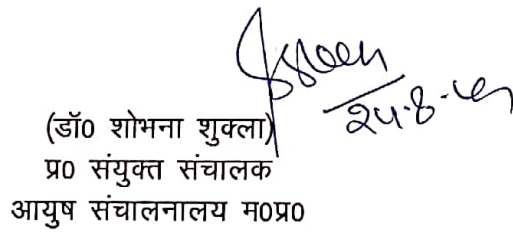 (डॉ0 शोभना शुक्ला)
प्र0 संयुक्त संचालक
आयुष संचालनालय म0प्र0